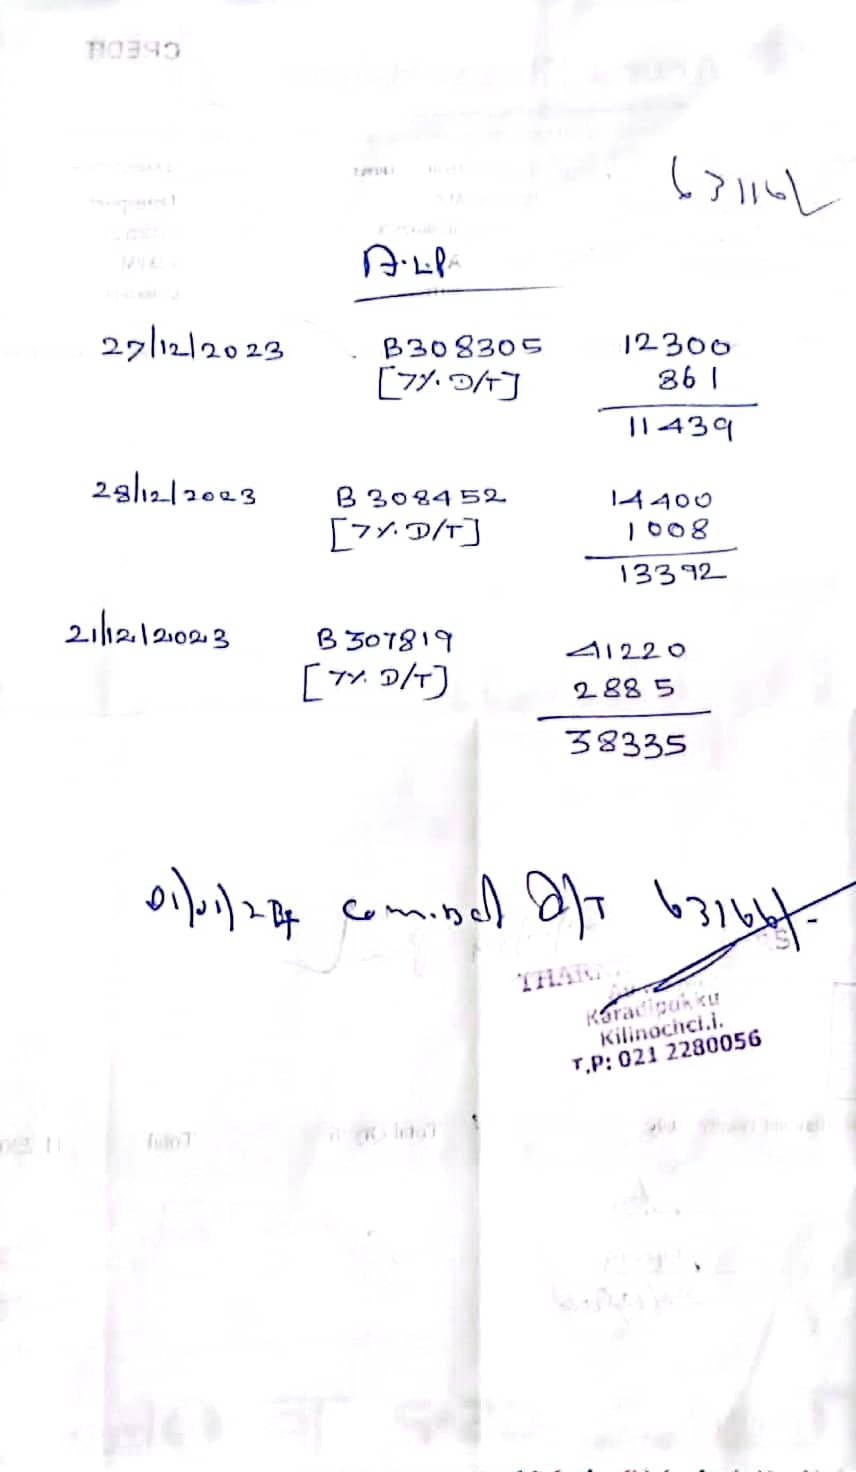 CREDIT
63116/
A.LPA
27/12/2023 B308305 12300
[7%. D/T] 861
11439
28/12/2023 B308452 14400
[7%. D/T] 1008
13392
21/12/2023 B307819 41220
[7%. D/T] 2885
38335
01/01/24 D/T 63166/-
THAR
Karadipokku
Kilinochci.i.
T.P: 021 2280056
Total